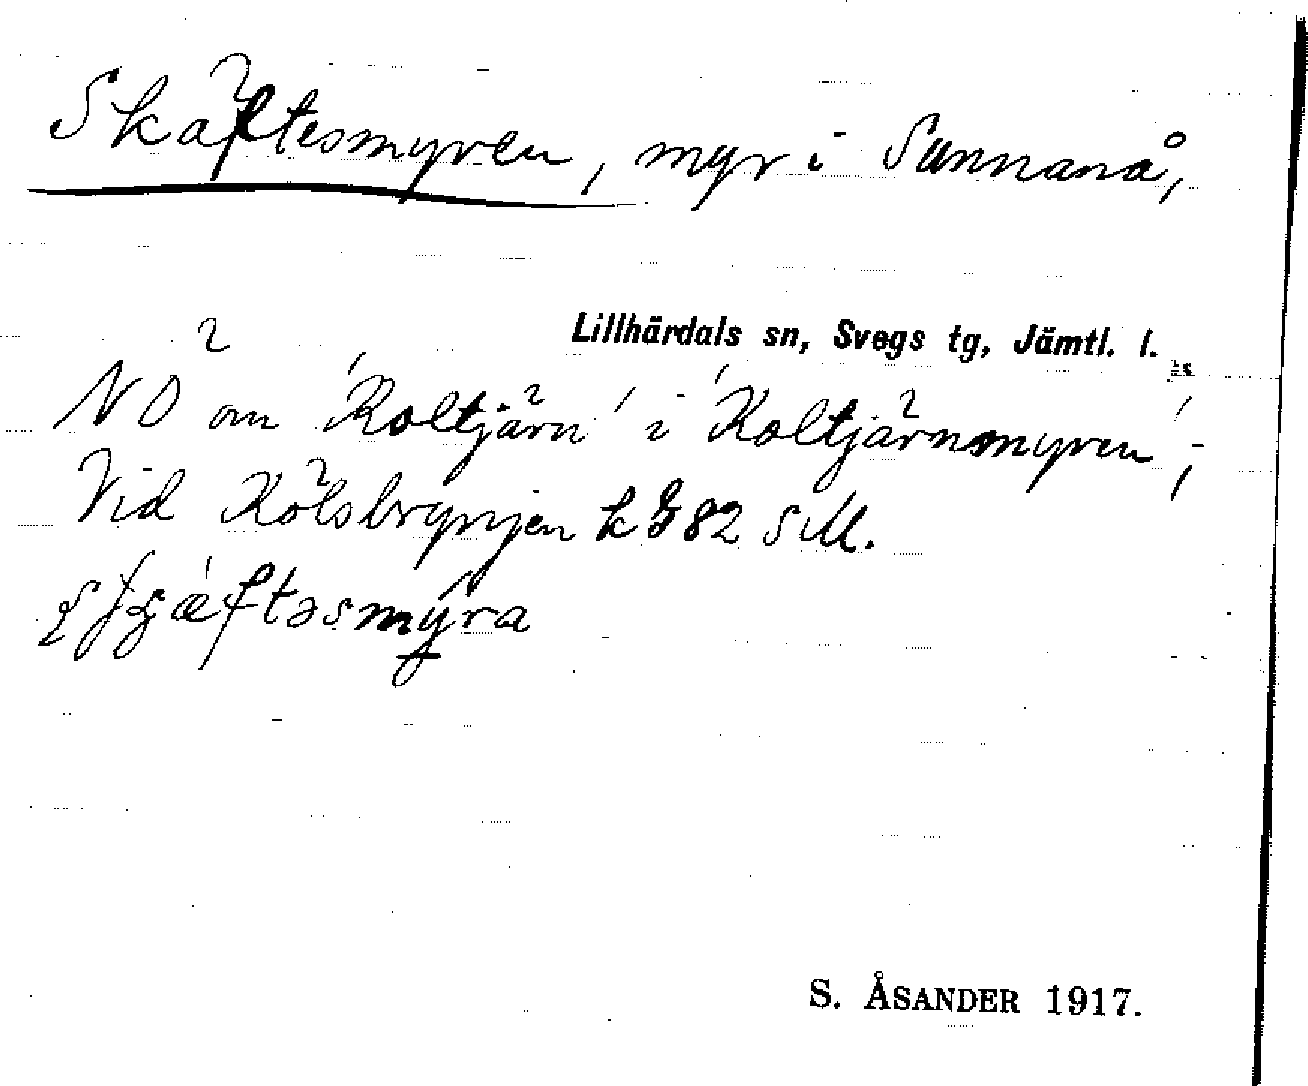 Skäftesmyren, myr i Sunnanå,
Lillhärdals sn, Svegs tg, Jämtl. l.
NÖ om 'Koltjärn' i 'Koltjärnsmyren';
Vid Kölsbrynjen k G 82 SM.
æftəsmýra
S. ÅSANDER 1917.